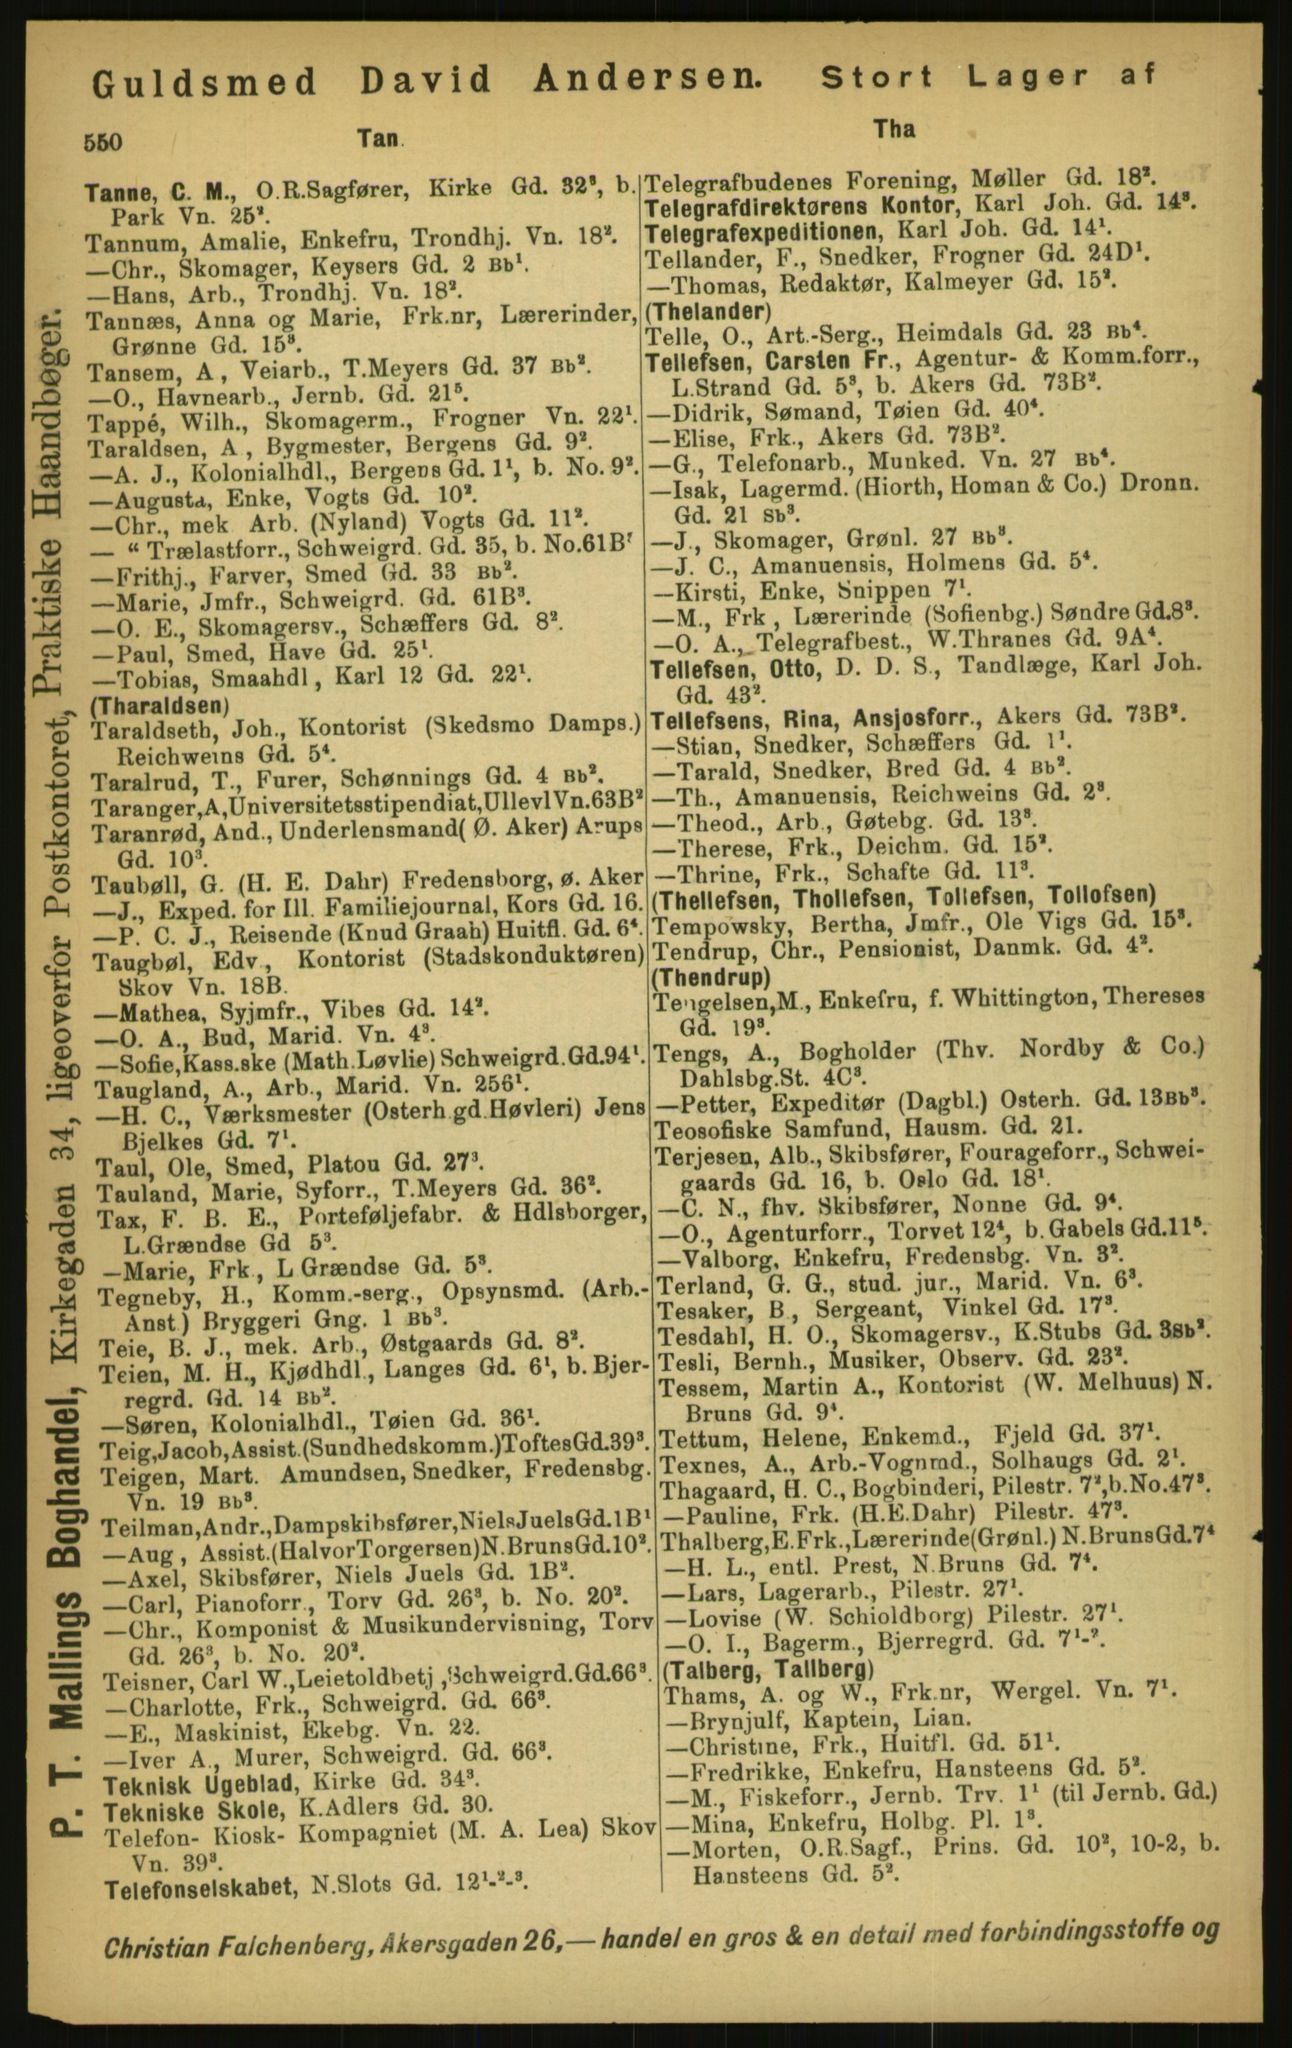 Guldsmed David Andersen. Stort Lager af
550
Tan.
Tha
P. T. Mallings Boghandel, Kirkegaden 34, ligeoverfor Postkontoret, Praktiske Haandbøger.
Tanne, C. M., O.R.Sagfører, Kirke Gd. 32³, b.
Park Vn. 25².
Tannum, Amalie, Enkefru, Trondhj. Vn. 18².
—Chr., Skomager, Keysers Gd. 2 Bb¹.
—Hans, Arb., Trondhj. Vn. 18².
Tannæs, Anna og Marie, Frk.nr, Lærerinder,
Grønne Gd. 15³.
Tansem, A , Veiarb., T.Meyers Gd. 37 Bb².
—O., Havnearb., Jernb. Gd. 21⁵.
Tappé, Wilh., Skomagerm., Frogner Vn. 22¹.
Taraldsen, A , Bygmester, Bergens Gd. 9².
—A. J., Kolonialhdl., Bergens Gd. 1¹, b. No. 9².
—Augusta, Enke, Vogts Gd. 10².
—Chr., mek Arb. (Nyland) Vogts Gd. 11².
— “ Trælastforr., Schweigrd. Gd. 35, b. No.61B
—Frithj., Farver, Smed Gd. 33 Bb².
—Marie, Jmfr., Schweigrd. Gd. 61B³.
—O. E., Skomagersv., Schæffers Gd. 8².
—Paul, Smed, Have Gd. 25¹.
—Tobias, Smaahdl , Karl 12 Gd. 22¹.
(Tharaldsen)
Taraldseth, Joh., Kontorist (Skedsmo Damps.)
Reichweins Gd. 5⁴.
Taralrud, T., Furer, Schønnings Gd. 4 Bb².
Taranger,A,Universitetsstipendiat,UllevlVn.63B²
Taranrød, And., Underlensmand( Ø. Aker) Arups
Gd. 10³.
Taubøll, G. (H. E. Dahr) Fredensborg, ø. Aker
—J., Exped. for Ill. Familiejournal, Kors Gd. 16.
—P. C. J., Reisende (Knud Graah) Huitfl. Gd. 6⁴.
Taugbøl, Edv., Kontorist (Stadskonduktøren)
Skov Vn. 18B.
—Mathea, Syjmfr., Vibes Gd. 14².
—O. A., Bud, Marid. Vn. 4³.
—Sofie,Kass.ske (Math.Løvlie) Schweigrd.Gd.94¹.
Taugland, A., Arb., Marid. Vn. 256¹.
—H. C., Værksmester (Osterh.gd.Høvleri) Jens
Bjelkes Gd. 7¹.
Taul, Ole, Smed, Platou Gd. 27³.
Tauland, Marie, Syforr., T.Meyers Gd. 36².
Tax, F. B. E., Porteføljefabr. & Hdlsborger,
L.Grændse Gd 5³.
—Marie, Frk., L Grændse Gd. 5³.
Tegneby, H., Komm.-serg., Opsynsmd. (Arb.-
Anst.) Bryggeri Gng. 1 Bb³.
Teie, B. J., mek. Arb., Østgaards Gd. 8².
Teien, M. H., Kjødhdl., Langes Gd. 6¹, b. Bjer-
regrd. Gd. 14 Bb².
—Søren, Kolonialhdl., Tøien Gd. 36¹.
Teig,Jacob,Assist.(Sundhedskomm.)ToftesGd.39³.
Teigen, Mart. Amundsen, Snedker, Fredensbg.
Vn. 19 Bb³.
Teilman,Andr.,Dampskibsfører,NielsJuelsGd.1B¹
—Aug , Assist.(HalvorTorgersen)N.BrunsGd.10².
—Axel, Skibsfører, Niels Juels Gd. 1B².
—Carl, Pianoforr., Torv Gd. 26³, b. No. 20².
—Chr., Komponist & Musikundervisning, Torv
Gd. 26³, b. No. 20².
Teisner, Carl W.,Leietoldbetj ,Schweigrd.Gd.66³.
—Charlotte, Frk., Schweigrd. Gd. 66³.
—E., Maskinist, Ekebg. Vn. 22.
—Iver A., Murer, Schweigrd. Gd. 66³.
Teknisk Ugeblad, Kirke Gd. 34³.
Tekniske Skole, K.Adlers Gd. 30.
Telefon- Kiosk- Kompagniet (M. A. Lea) Skov
Vn. 39³.
Telefonselskabet, N.Slots Gd. 12¹-²-³.
Telegrafbudenes Forening, Møller Gd. 18².
Telegrafdirektørens Kontor, Karl Joh. Gd. 14³.
Telegrafexpeditionen, Karl Joh. Gd. 14¹.
Tellander, F., Snedker, Frogner Gd. 24D¹.
—Thomas, Redaktør, Kalmeyer Gd. 15².
(Thelander)
Telle, O., Art.-Serg., Heimdals Gd. 23 Bb⁴.
Tellefsen, Carsten Fr., Agentur- & Komm.forr.,
L.Strand Gd. 5³, b. Akers Gd. 73B².
—Didrik, Sømand, Tøien Gd. 40⁴.
—Elise, Frk., Akers Gd. 73B².
—G., Telefonarb., Munked. Vn. 27 Bb⁴.
—Isak, Lagermd. (Hiorth, Homan & Co.) Dronn.
Gd. 21 Sb³.
—J., Skomager, Grønl. 27 Bb³.
—J. C., Amanuensis, Holmens Gd. 5⁴.
—Kirsti, Enke, Snippen 7¹.
—M., Frk , Lærerinde (Sofienbg.) Søndre Gd.8³.
—O. A., Telegrafbest., W.Thranes Gd. 9A⁴.
Tellefsen, Otto, D. D. S., Tandlæge, Karl Joh.
Gd. 43².
Tellefsens, Rina, Ansjosforr., Akers Gd. 73B².
—Stian, Snedker, Schæffers Gd. 1¹.
—Tarald, Snedker, Bred Gd. 4 Bb².
—Th., Amanuensis, Reichweins Gd. 2³.
—Theod., Arb., Gøtebg. Gd. 13³.
—Therese, Frk., Deichm. Gd. 15².
—Thrine, Frk., Schafte Gd. 11³.
(Thellefsen, Thollefsen, Tollefsen, Tollofsen)
Tempowsky, Bertha, Jmfr., Ole Vigs Gd. 15³.
Tendrup, Chr., Pensionist, Danmk. Gd. 4².
(Thendrup)
Tengelsen,M., Enkefru, f. Whittington, Thereses
Gd. 19³.
Tengs, A., Bogholder (Thv. Nordby & Co.)
Dahlsbg.St. 4C³.
—Petter, Expeditør (Dagbl.) Osterh. Gd. 13Bb³.
Teosofiske Samfund, Hausm. Gd. 21.
Terjesen, Alb., Skibsfører, Fourageforr., Schwei-
gaards Gd. 16, b. Oslo Gd. 18¹.
—C. N., fhv. Skibsfører, Nonne Gd. 9⁴.
—O., Agenturforr., Torvet 12⁴, b.Gabels Gd.11⁵.
—Valborg, Enkefru, Fredensbg. Vn. 3².
Terland, G. G., stud. jur., Marid. Vn. 6³.
Tesaker, B , Sergeant, Vinkel Gd. 17³.
Tesdahl, H. O., Skomagersv., K.Stubs Gd. 3Sb².
Tesli, Bernh., Musiker, Observ. Gd. 23².
Tessem, Martin A., Kontorist (W. Melhuus) N.
Bruns Gd. 9⁴.
Tettum, Helene, Enkemd., Fjeld Gd. 37¹.
Texnes, A., Arb.-Vognmd., Solhaugs Gd. 2¹.
Thagaard, H. C., Bogbinderi, Pilestr. 7²,b.No.47³.
—Pauline, Frk. (H.E.Dahr) Pilestr. 47³.
Thalberg,E.Frk.,Lærerinde(Grønl.) N.BrunsGd.7⁴
—H. L., entl. Prest, N.Bruns Gd. 7⁴.
—Lars, Lagerarb., Pilestr. 27¹.
—Lovise (W. Schioldborg) Pilestr. 27¹.
—O. I., Bagerm., Bjerregrd. Gd. 7¹-².
(Talberg, Tallberg)
Thams, A. og W., Frk.nr, Wergel. Vn. 7¹.
—Brynjulf, Kaptein, Lian.
—Christine, Frk., Huitfl. Gd. 51¹.
—Fredrikke, Enkefru, Hansteens Gd. 5².
—M., Fiskeforr., Jernb. Trv. 1¹ (til Jernb. Gd.)
—Mina, Enkefru, Holbg. Pl. 1³.
—Morten, O.R.Sagf., Prins. Gd. 10², 10-2, b.
Hansteens Gd. 5².
Christian Falchenberg, Akersgaden 26,— handel en gros & en detail med forbindingsstoffe og